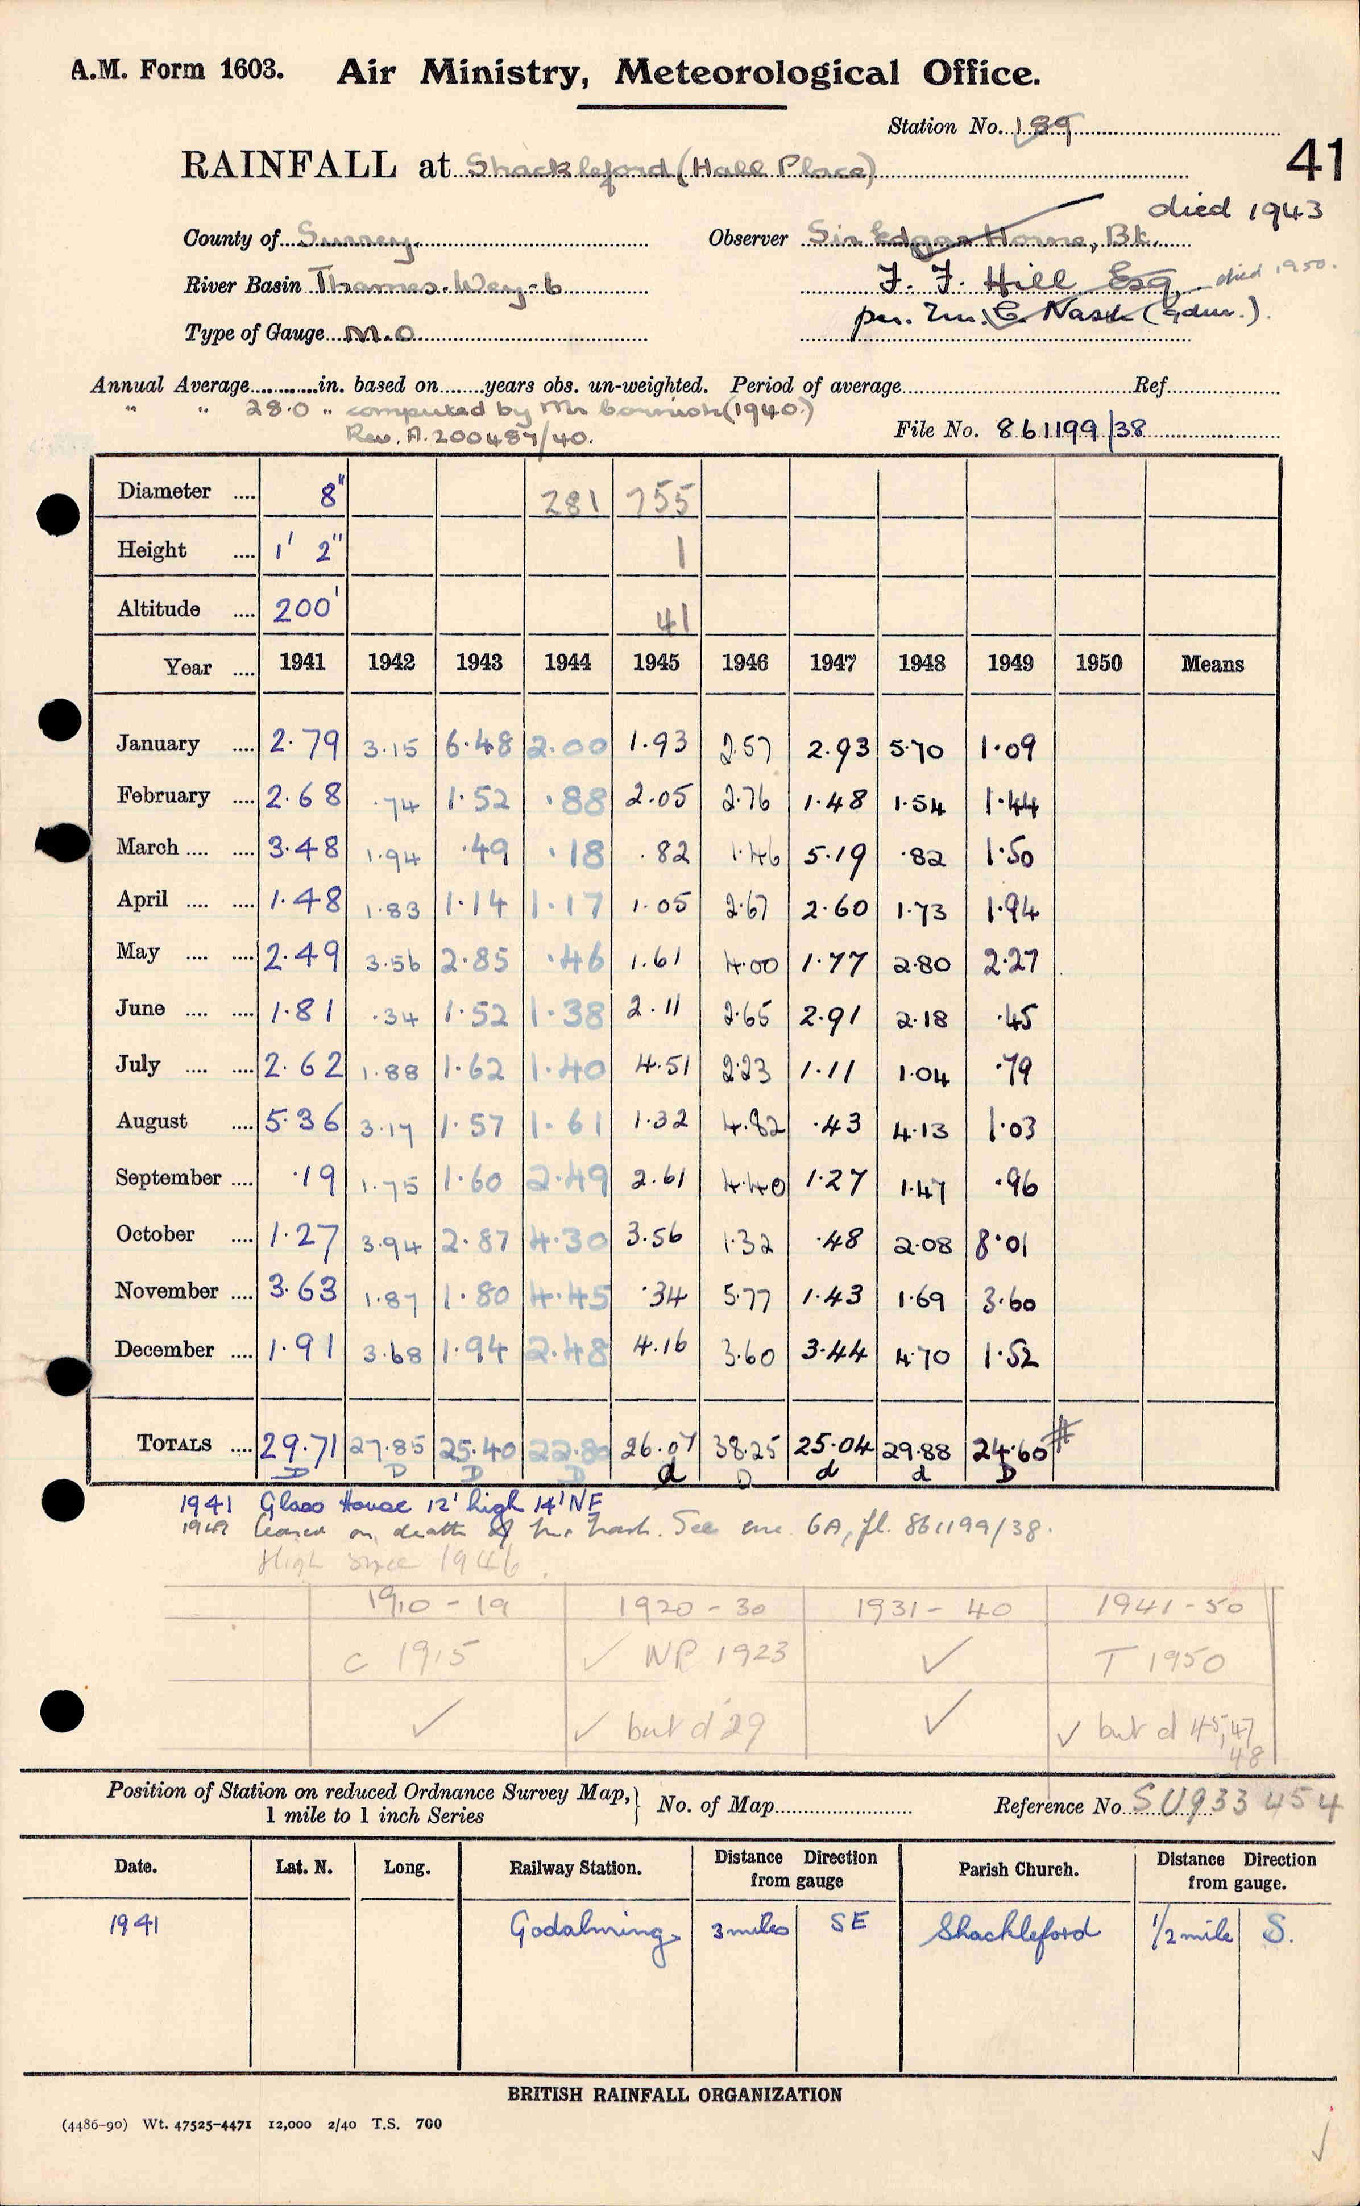 A.M. Form 1603. Air Ministry, Meteorological Office.
Station No. 189
41
RAINFALL at Shackleford (Hall Place)
died 1943
County of Surrey. Observer Sir Edgar Horne, Bt.
River Basin Thames-Wey-b F. F. Hill Esq. died 1950.
Type of Gauge M.O. per. Mr. C. Nash (gdnr.)
Annual Average in. based on years obs. un-weighted. Period of average Ref
" " 28.0 " computed by Mr (1940.)
Rev. A.200487/40. File No. 861199/38
Diameter .... 8" 281 755
Height .... 1' 2" 1
Altitude .... 200' 41
Year .... 1941 1942 1943 1944 1945 1946 1947 1948 1949 1950 Means
January .... 2.79 3.15 6.48 2.00 1.93 2.57 2.93 5.70 1.09
February .... 2.68 .74 1.52 .88 2.05 2.76 1.48 1.54 1.44
March .... .... 3.48 1.94 .49 .18 .82 1.46 5.19 .82 1.50
April .... .... 1.48 1.83 1.14 1.17 1.05 2.67 2.60 1.73 1.94
May .... .... 2.49 3.56 2.85 .46 1.61 4.00 1.77 2.80 2.27
June .... .... 1.81 .34 1.52 1.38 2.11 2.65 2.91 2.18 .45
July .... .... 2.62 1.88 1.62 1.40 4.51 2.23 1.11 1.04 .79
August .... 5.36 3.17 1.57 1.61 1.32 4.82 .43 4.13 1.03
September .... .19 1.75 1.60 2.49 2.61 4.40 1.27 1.47 .96
October .... 1.27 3.94 2.87 4.30 3.56 1.32 .48 2.08 8.01
November .... 3.63 1.87 1.80 4.45 .34 5.77 1.43 1.69 3.60
December .... 1.91 3.68 1.94 2.48 4.16 3.60 3.44 4.70 1.52
TOTALS .... 29.71 27.85 25.40 22.80 26.07 38.25 25.04 29.88 24.60 #
D D D D d D d d D
1941 Glass House 12' high 14' NE
1949 Ceased on death of Mr. Nash. See enc. 6A, fl. 861199/38.
High since 1946.
1910-19 1920-30 1931-40 1941-50
c 1915 ✓ NP 1923 ✓ T 1950
✓ ✓ but d '29 ✓ ✓ but d 45, 47
48
Position of Station on reduced Ordnance Survey Map, 1 mile to 1 inch Series } No. of Map Reference No. SU933 454
Date. Lat. N. Long. Railway Station. Distance Direction from gauge Parish Church. Distance Direction from gauge.
1941 Godalming 3 miles SE Shackleford 1/2 mile S.
BRITISH RAINFALL ORGANIZATION
(4486-90) Wt. 47525-4471 12,000 2/40 T.S. 700